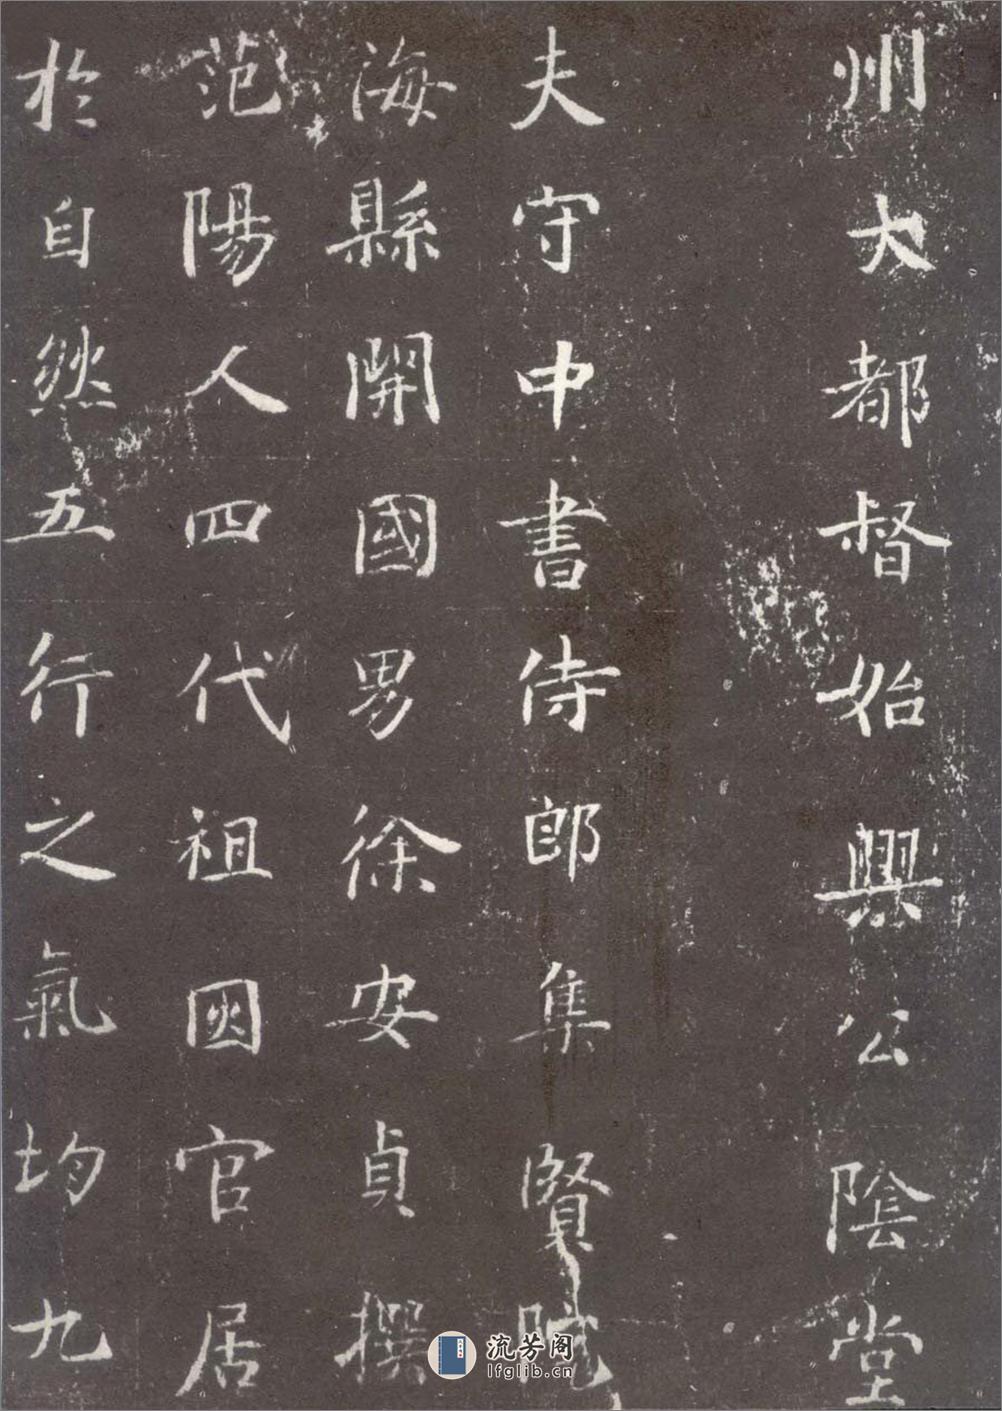 州大都督始興公陰堂
夫守中書侍郎集賢院
海縣開國男徐安貞撰
范陽人四代祖因官居
於自然五行之氣均九
流芳阁
lfglib.cn